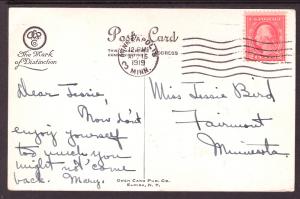 Post Card
The Mark
of Distinction
THIS
ADDRESS
MINNEAPOLIS
SEP
12 PM
15
1919
MINN.
Dear Jessie,
Now don't
enjoy yourself
too much you
might not come
back. Mary.
Miss Jessie Bird
Fairmont
Minnesota.
OWEN CARD PUB. CO.
ELMIRA, N.Y.